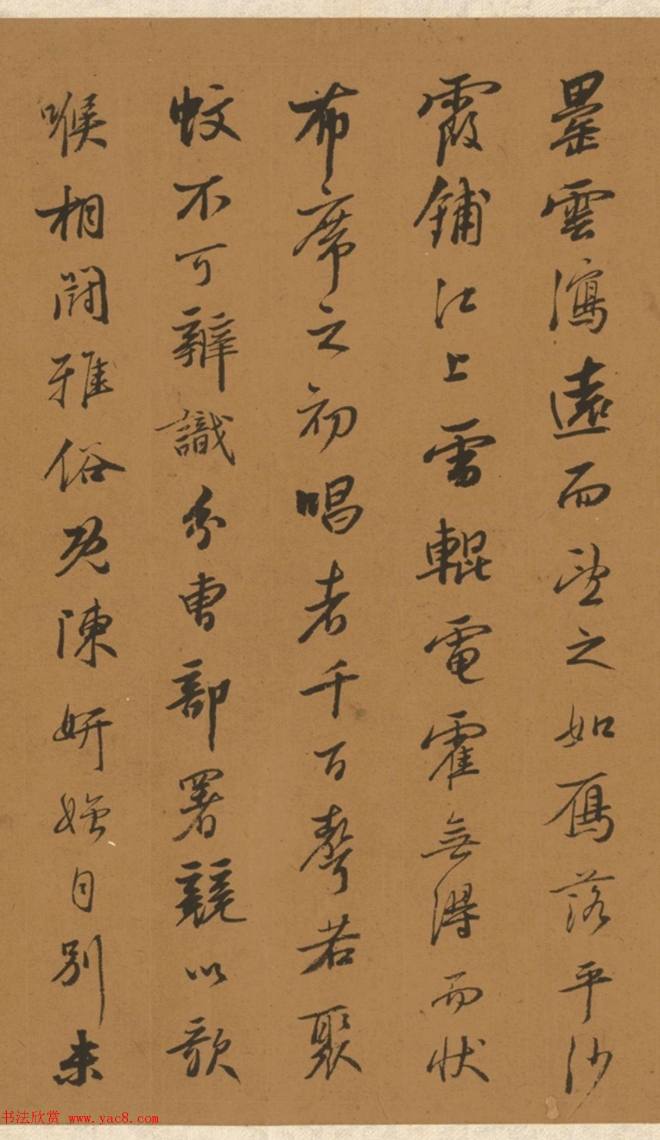 罍雲瀉遠而望之如雁落平沙
霞鋪江上雷輥電霍無得而狀
布席之初唱者千百聲若聚
蚊不可辨識分曹部署競以歌
喉相鬪雅俗既陳妍媸自別未
书法欣赏 www.yac8.com